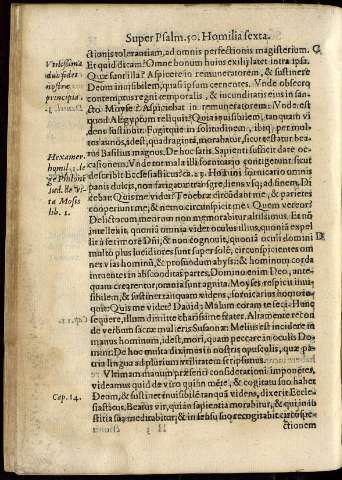 Super Psalm. 50. Homilia sexta.
ctionis tolerantiam, ad omnis perfectionis magisterium. C
Et quid dicam? Omne bonum huius exilij latet intra ipsa.
Quæ sunt illa? Aspicere in remuneratorem, & sustinere
Deum inuisibilem, quasi ipsum cernentes. Vnde obsecro
contemptus regni temporalis, & iucunditatis eius in san-
cto Moise? Aspiciebat in remuneratorem. Vnde est
quod Aegyptum reliquit? Quia inuisibilem, tanquam vi
dens sustinuit. Fugitque in solitudinem, ibique per mul-
tos annos, idest, quadraginta, morabatur, sicut testatur bea
tus Basilius magnus. De hoc satis. Sapienti sufficit dare oc-
casionem. Vnde tot mala illi fornicario contigerint sicut
describit Ecclesiasticus ca. 23. Homini fornicario omnis
panis dulcis, non fatigatur transgrediens vsque ad finem. Di
cebat: Quis me videt? Tenebræ circundat me, & parietes
cooperiunt me, & nemo circunspicit me: Quem vereor?
Delictorum meorum non memorabitur altissimus. Et non
intellexit, quoniã omnia videt oculus illius, quoniã expel
lit à se timorẽ Dñi; & non cognouit, quoniã oculi domini D
multo plus lucidiores sunt super solẽ, circunspicientes om
nes vias hominũ, & profundum abyssi: & hominum corda
intuentes in absconditas partes. Domino enim Deo, ante-
quam crearentur, omnia sunt agnita. Moyses respicit inui
sibilem, & sustinet tanquam videns, fornicarius homo lo-
quitur: Quis me videt? Dauid: Malum coram te feci. Hunc
sequere, illum dimitte charissime frater. Altamente recon
de verbum sacræ mulieris Susannæ: Melius est incidere in
manus hominum, idest, mori, quam peccare in oculis Do-
mini. De hoc multa diximus in nostris opusculis, quæ pa-
tria lingua ad plurium vtilitatem scripsimus.
Vltimam manum præsenti considerationi imponẽtes,
videamus quid de viro qui in mẽte, & cogitatu suo habet
Deum, & sustinet inuisibilẽ tanquã videns, dixerit Eccle-
siasticus. Beatus vir, qui in sapientia morabitur, & qui in iu
stitia sua meditabitur; & in sensu suo recogitabit circũspe-
ctionem
Vtilissima
duo fidei
nostræ
principia.
Hexamer.
homil. 1. le
ge Philonẽ
Iud. de vi-
ta Mosis
lib. 1.
Cap. 14.